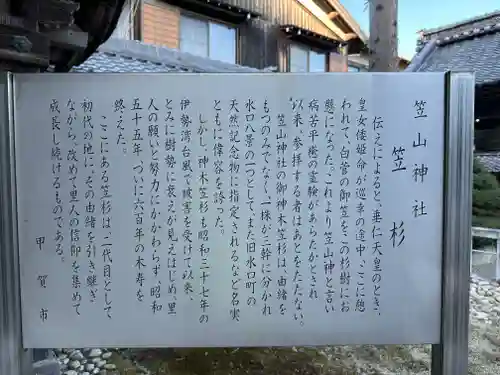 笠山神社
笠杉
伝えによると、垂仁天皇のとき、
皇女倭姫命が巡幸の途中、ここに憩
われて、白菅の御笠を、この杉樹にお
懸になった。これより笠山神と言い
病苦平癒の霊験があらたかとされ
以来、参拝する者はあとをたたない。
笠山神社の御神木笠杉は、由緒を
もつのみでなく一株が七幹に分かれ
水口八景の一つとして、また旧水口町の
天然記念物に指定されるなど名実
ともに偉容を誇った。
しかし、神木笠杉も昭和三十七年の
伊勢湾台風で被害を受けて以来、
とみに樹勢に衰えが見えはじめ、里
人の願いと努力にかかわらず、昭和
五十五年、ついに六百年の木寿を
終えた。
ここにある笠杉は、二代目として
初代の地に、その由緒を引き継ぎ
ながら、改めて里人の信仰を集めて
成長し続けるものである。
甲賀市